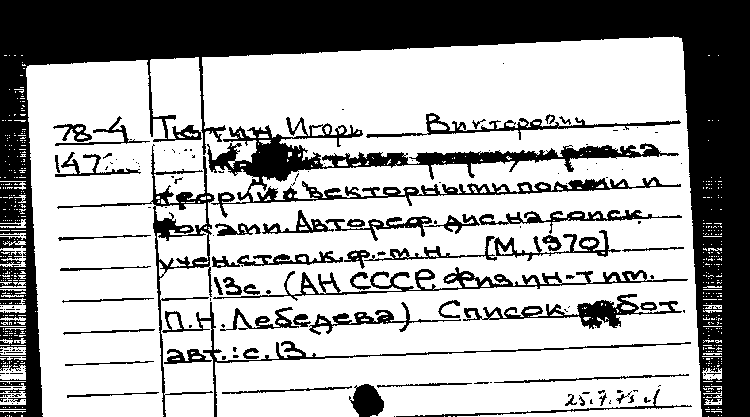 78-4 Тютин, Игорь Викторович
147
теорий с векторными полями и
токами. Автореф. дис. на соиск.
учен. степ. к. ф.-м. н. [М., 1970]
13с. (АН СССР. Физ. ин-т им.
П.Н. Лебедева). Список работ
авт.: с. 13.
25.7.75